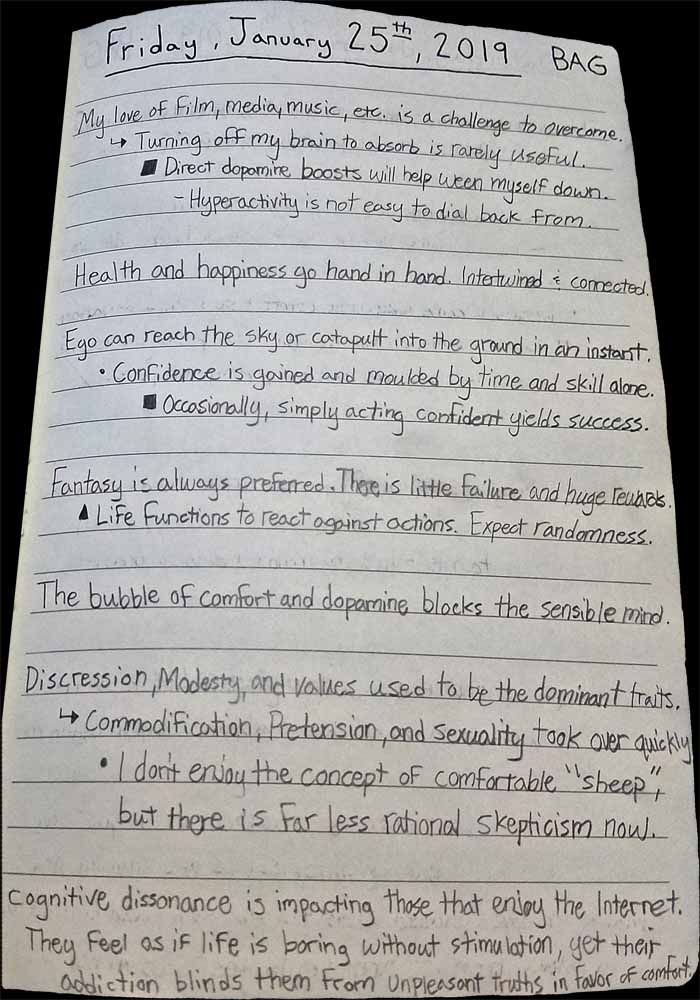 Friday, January 25th, 2019 BAG
My love of film, media, music, etc. is a challenge to overcome.
↳ Turning off my brain to absorb is rarely useful.
■ Direct dopamine boosts will help ween myself down.
- Hyperactivity is not easy to dial back from.
Health and happiness go hand in hand. Intertwined & connected.
Ego can reach the sky or catapult into the ground in an instant.
• Confidence is gained and moulded by time and skill alone.
■ Occasionally, simply acting confident yields success.
Fantasy is always preferred. There is little failure and huge rewards.
▲ Life functions to react against actions. Expect randomness.
The bubble of comfort and dopamine blocks the sensible mind.
Discression, Modesty, and values used to be the dominant traits.
↳ Commodification, Pretension, and sexuality took over quickly
• I don't enjoy the concept of comfortable "sheep",
but there is far less rational skepticism now.
Cognitive dissonance is impacting those that enjoy the Internet.
They feel as if life is boring without stimulation, yet their
addiction blinds them from unpleasant truths in favor of comfort.